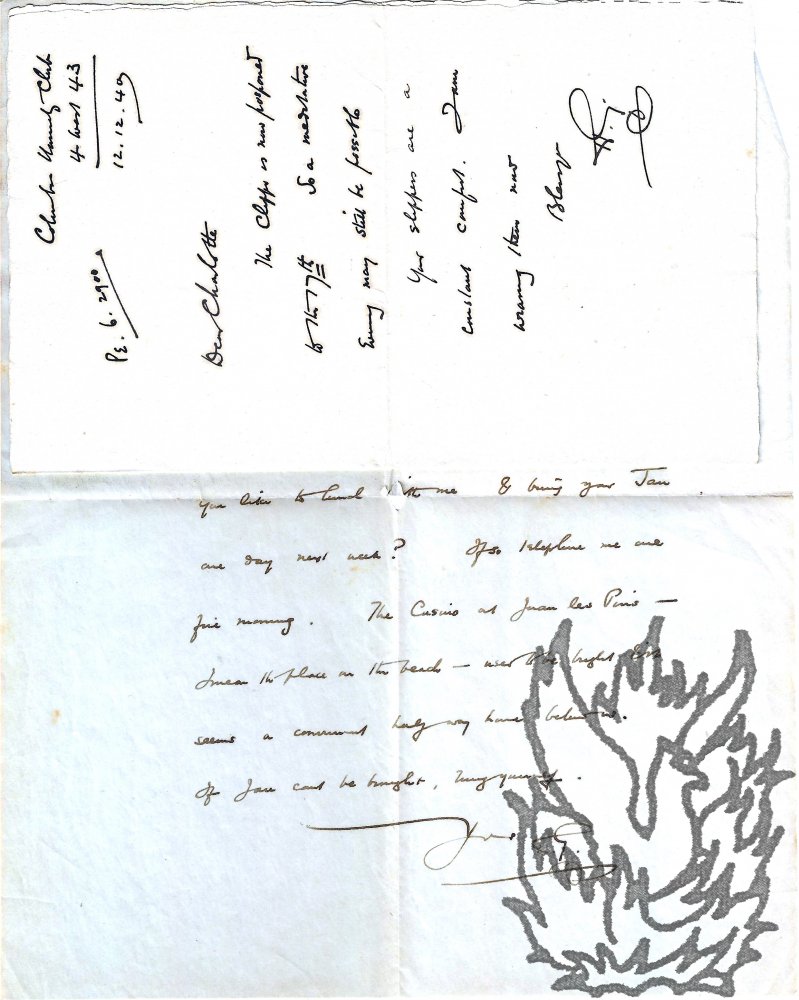 Columbia University Club
4 West 43
12.12.40
PE. 6. 2900
Dear Charlotte
The Clipper is now postponed
to the 17th So a meditative
Evening may still be possible
Your slippers are a
constant comfort. I am
wearing them now
H.G.
you like to lunch with me & bring your Jane
one day next week? If so telephone me one
fine morning. The Casino at Juan les Pins —
I mean the place on the beach — used to be bright &
seems a convenient half way house between us.
If Jane cant be brought, bring yourself.
Yours